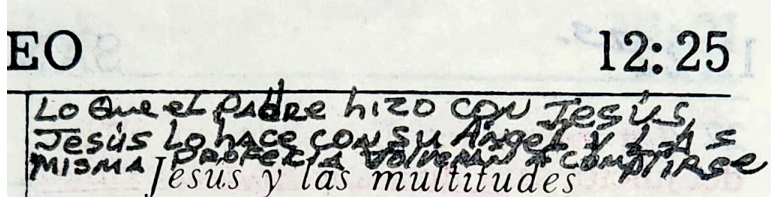 EO 12:25
Lo que el PADRE hizo CON Jesús,
Jesús Lo hACE CON SU Ángel Y LAS
MISMA PROFECIA VOLVERAN A COMPLIRSE
Jesús y las multitudes